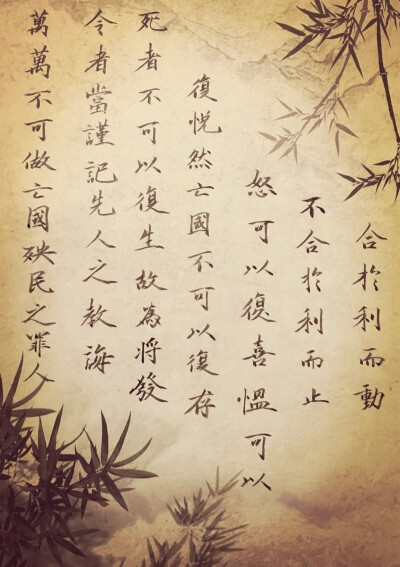 合於利而動
不合於利而止
怒可以復喜愠可以
復悅然亡國不可以復存
死者不可以復生故為將發
令者當謹記先人之教誨
萬萬不可做亡國殃民之罪人